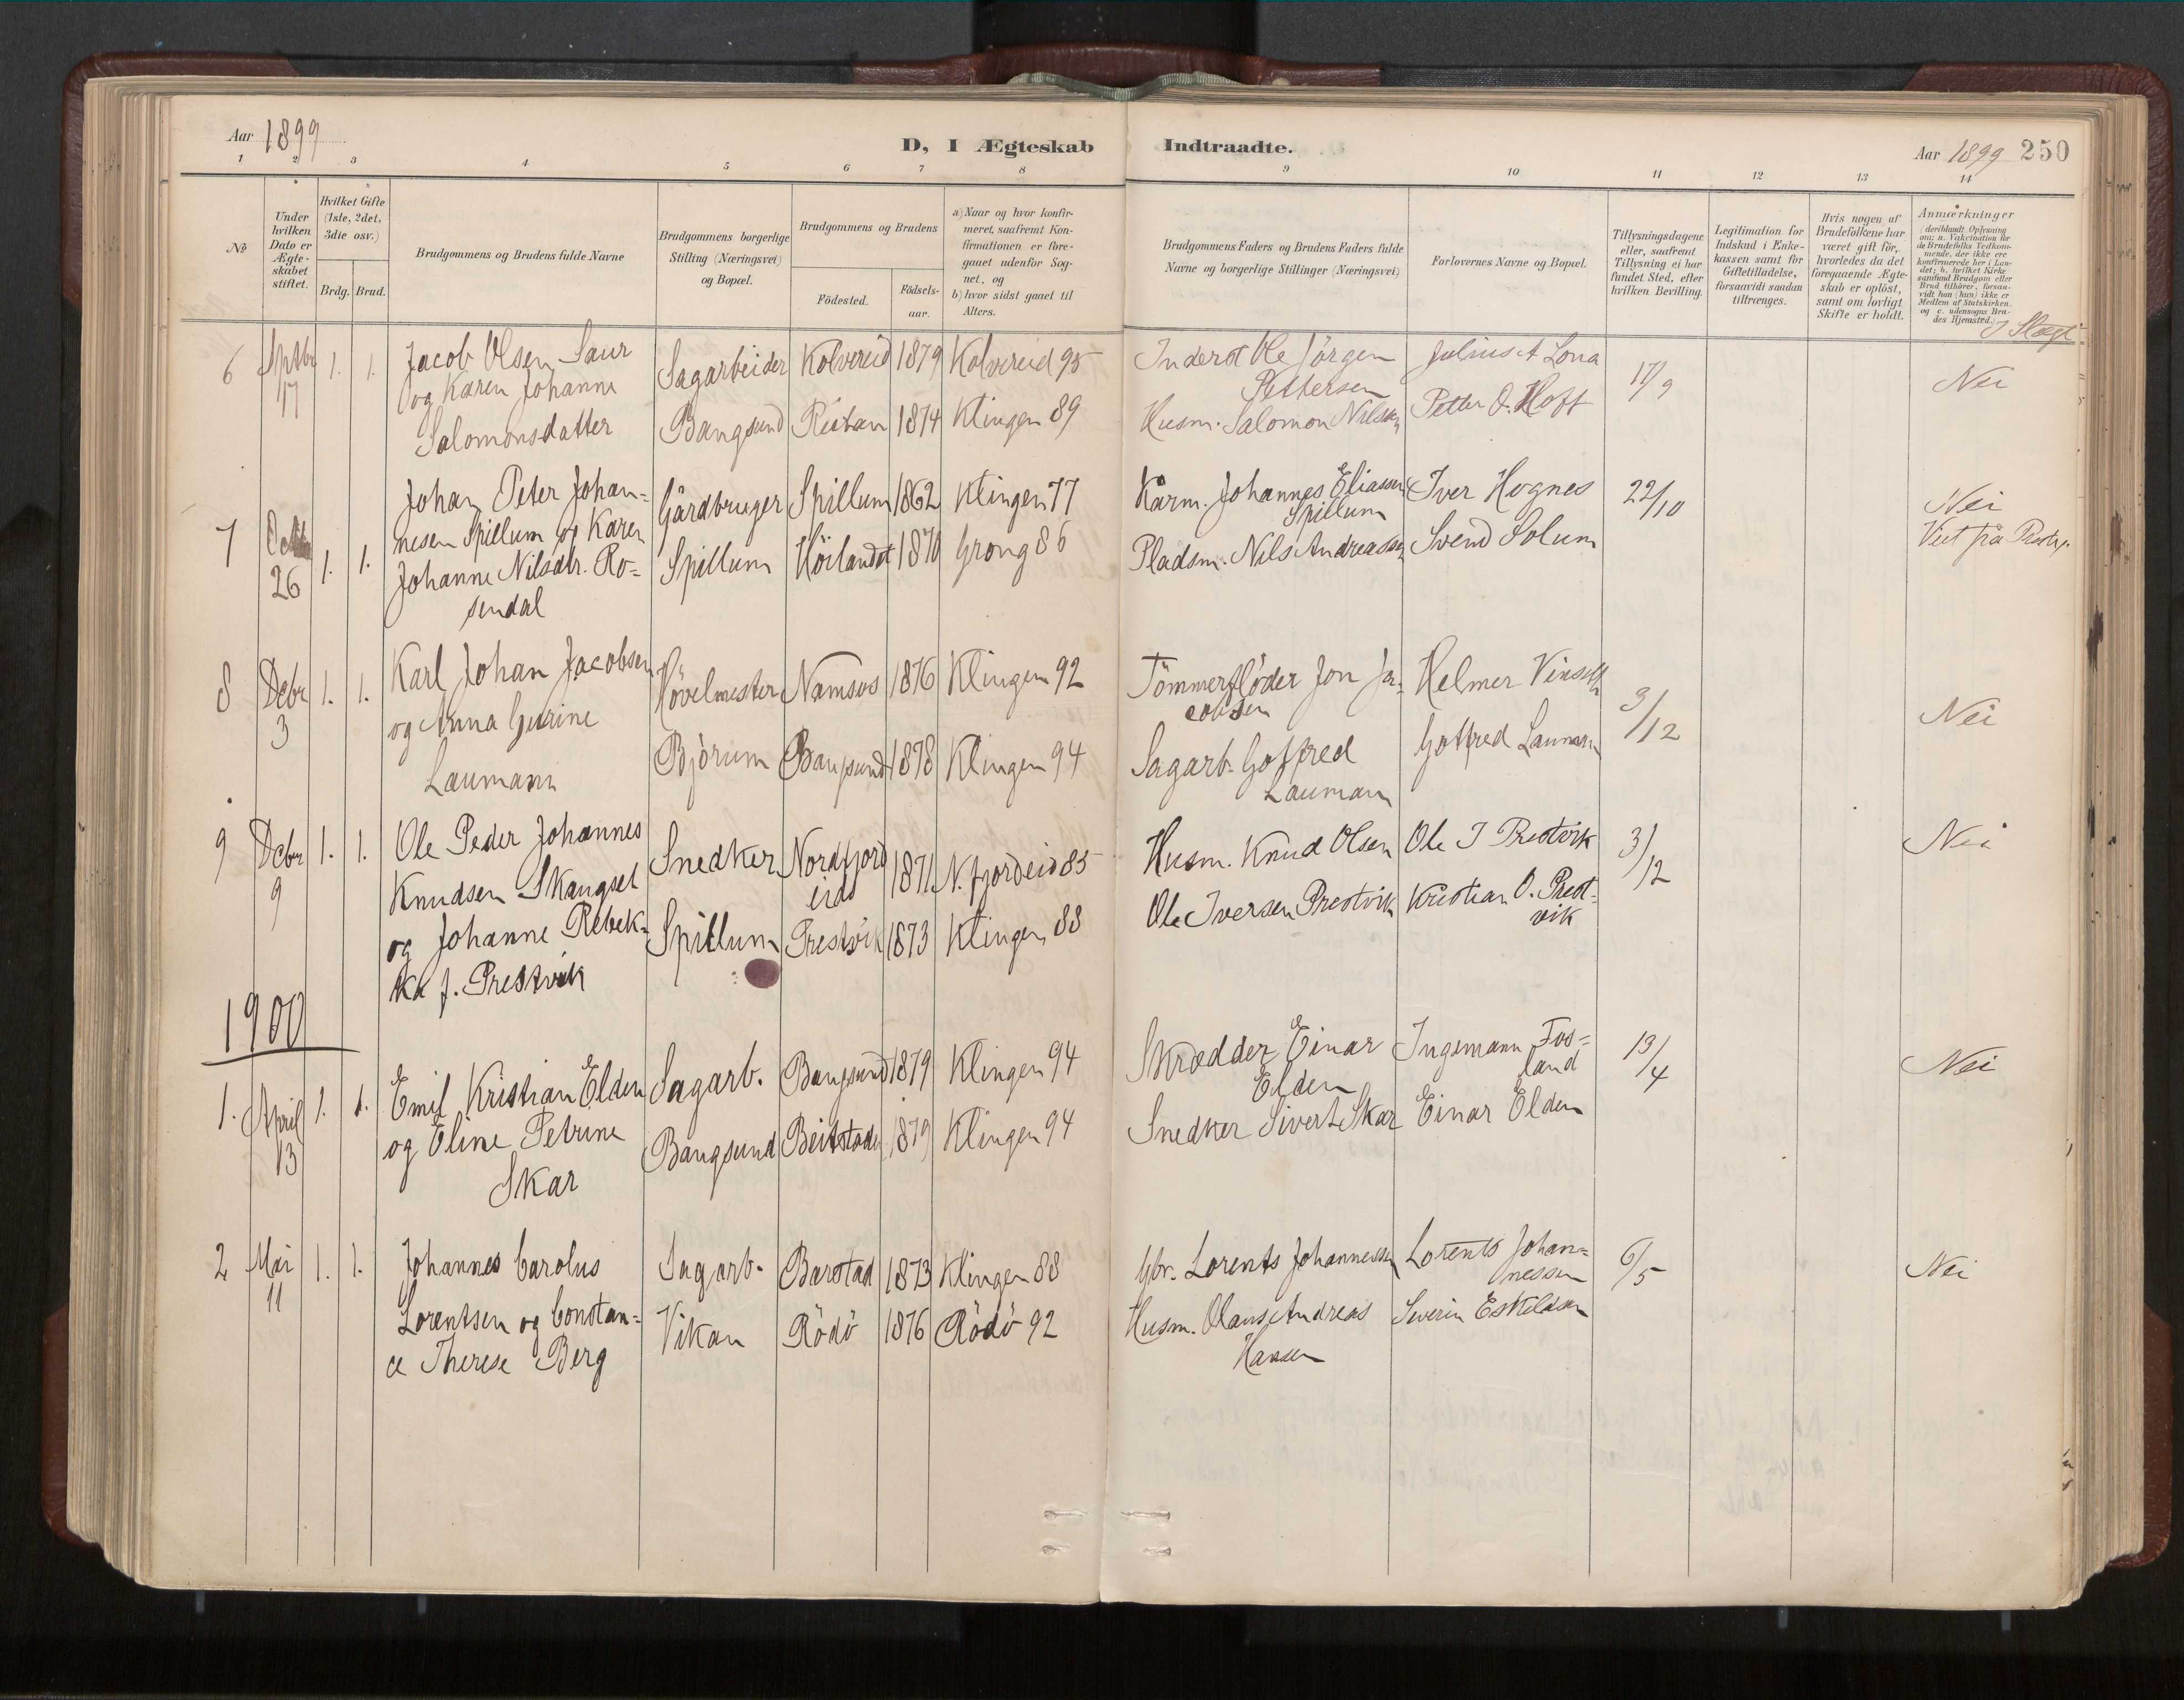 Aar 1899
D, I Ægteskab Indtraadte.
Aar 1899 250
1 2 3 4 5 6 7 8 9 10 11 12 13 14
No
Under hvilken Dato er Ægteskabet stiftet.
Hvilket Gifte (1ste, 2det, 3die osv.)
Brdg. Brud.
Brudgommens og Brudens fulde Navne
Brudgommens borgerlige Stilling (Næringsvei) og Bopæl.
Brudgommens og Brudens
Födested.
Födsels-aar.
a) Naar og hvor konfirmeret, saafremt Konfirmationen er foregaaet udenfor Sognet, og
b) hvor sidst gaaet til Alters.
Brudgommens Faders og Brudens Faders fulde Navne og borgerlige Stillinger (Næringsvei)
Forlovernes Navne og Bopæl.
Tillysningsdagene eller, saafremt Tillysning ei har fundet Sted, efter hvilken Bevilling.
Legitimation for Indskud i Enkekassen samt for Giftetilladelse, forsaavidt saadan tiltrænges.
Hvis nogen af Brudefolkene har været gift för, hvorledes da det foregaaende Ægteskab er oplöst, samt om lovligt Skifte er holdt.
Anmærkninger (deriblandt Oplysning om: a. Vakcination for de Brudefolks Vedkommende, der ikke ere konfirmerede her i Landet; b. hvilket Kirkesamfund Brudgom eller Brud tilhører, forsaavidt han (hun) ikke er Medlem af Statskirken, og c. udensogns Brudes Hjemsted.)
I Slægt
6 Sptbr 17 1. 1.
Jacob Olsen Saur
og Karen Johanne
Salomonsdatter
Sagarbeider Kolvereid 1879 Kolvereid 95
Bangsund 1874 Klingen 89
Inderst Ole Jörgen
Pettersen
Husm. Salomon Nilsen
Julius A Lona
Petter O. Hoff
17/9
Nei
7 26 1. 1.
Johan Peter Johan=
nesen Spillum og Karen
Johanne Nilsdtr. Ro=
sendal
Gårdbruger Spillum 1862 Klingen 77
Spillum Höilandet 1870 Grong 86
Kårm. Johannes Eliassen
Spillum
Pladsm. Nils Andreassen
Iver Hognes
Svend Solum
22/10
Nei
8 Debr 3 1. 1.
Karl Johan Jacobsen
og Anna Gurine
Laumann
Hövelmester Namsos 1876 Klingen 92
Björum Bangsund 1878 Klingen 94
Tömmerflöder Jon Ja=
cobsen
Sagarb. Gotfred
Laumann
Helmer
Gotfred Laumann
3/12
Nei
9 Debr 9 1. 1.
Ole Peder Johannes
Knudsen Skangset
og Johanne Rebek=
ka f. Prestvik
Snedker Nordfjord
eid 1871 N. fjordeid 85
Spillum Prestvik 1873 Klingen 88
Husm. Knud Olsen
Ole Iversen Prestvik
Ole I Prestvik
Kristian O. Prest=
vik
3/12
Nei
1900
1. April 13 1. 1.
Emil Kristian Elden
og Eline Petrine
Skar
Sagarb. Bangsund 1879 Klingen 94
Bangsund Beitstaden 1879 Klingen 94
Skrædder Einar
Elden
Snedker Sivert Skar
Ingemann Fos=
land
Einar Elden
13/4
Nei
2 Mai 11 1. 1.
Johannes Carolus
Lorentsen og Constan=
ce Therese Berg
Sagarb. Barstad 1873 Klingen 88
Vikan Rödö 1876 Rödö 92
Gbr. Lorents Johannessen
Husm. Olaus Andreas
Hansen
Lorents Johan=
nessen
Severin Eskildsen
6/5
Nei